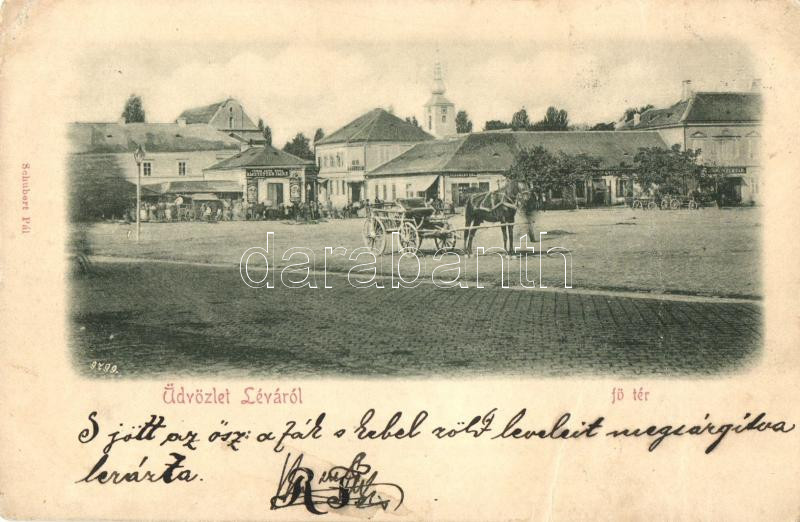 Schubert Pál
darabanth
9790.
Üdvözlet Léváról
fö tér
S jött az ősz: a fák s kebel zöld leveleit megsárgítva
lerázta.